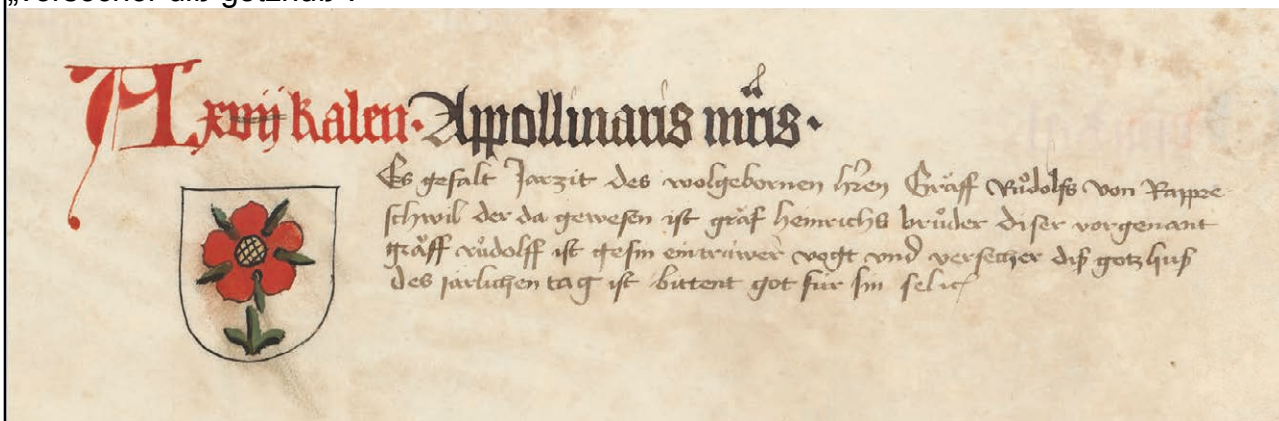 A xvij kalen. Appollinaris mr̄is.
Es gefalt Jarzit des wolgebornen h̄ren Gräff Růdolfs von Rappre
schwil der da gewesen ist gräf heinrichs brůder diser vorgenant
gräff růdolff ist gesin ein trüwer vogt vnd versecher diß gotzhuß
des jarlichen tag ist bittent got für sin sel